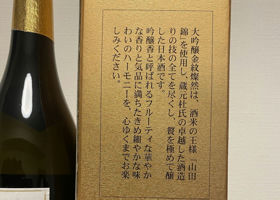 大吟醸金紋燦然は、酒米の王様「山田
錦」を使用し、蔵元杜氏の卓越した酒造
りの技の全てを尽くし、贅を極めて醸
した日本酒です。
吟醸香と呼ばれるフルーティな華やか
な香りと気品に満ちたきめ細やかな味
わいのハーモニーを、心ゆくまでお楽
しみください。